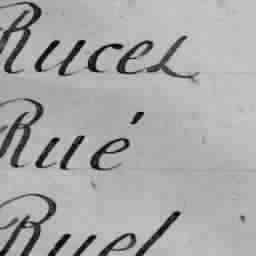 Rucel
Rué
Ruel